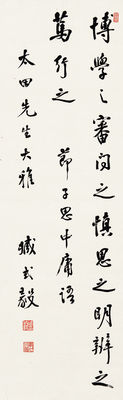 博學之審問之慎思之明辨之
篤行之 節子思中庸語
太田先生大雅 臧式毅